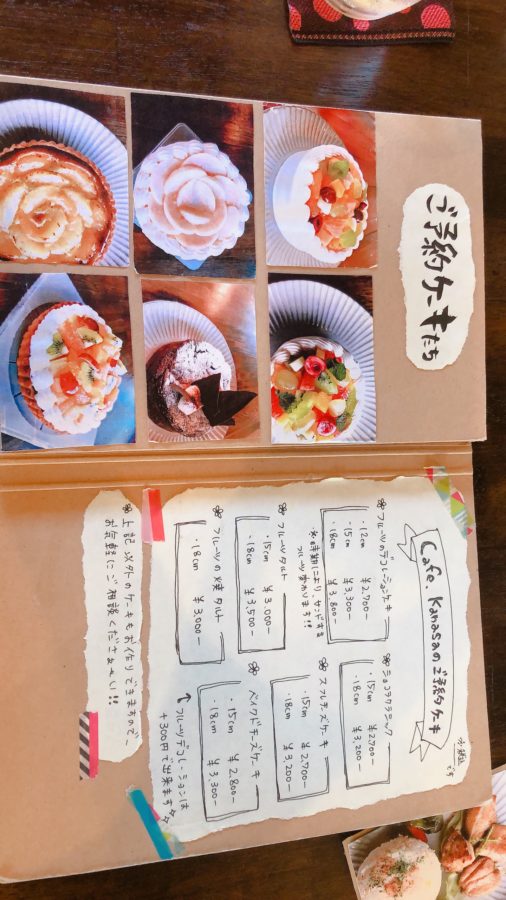 ご予約ケーキたち
Cafe. Kanasaのご予約ケーキ
フルーツのデコレーションケーキ
・12cm ¥2,700-
・15cm ¥3,300-
・18cm ¥3,800-
フルーツ変わります!!
フルーツタルト
・15cm ¥3,000-
・18cm ¥3,500-
フルーツの焼タルト
・18cm ¥3,000-
ショコラクラシック
・15cm ¥2,700-
・18cm ¥3,200-
スフレチーズケーキ
・15cm ¥2,700-
・18cm ¥3,200-
ベイクドチーズケーキ
・15cm ¥2,800-
・18cm ¥3,300-
フルーツデコレーションは
+300円で出来ます☆
上記以外のケーキもお作りできますので〜
お気軽にご相談くださぁーい!!